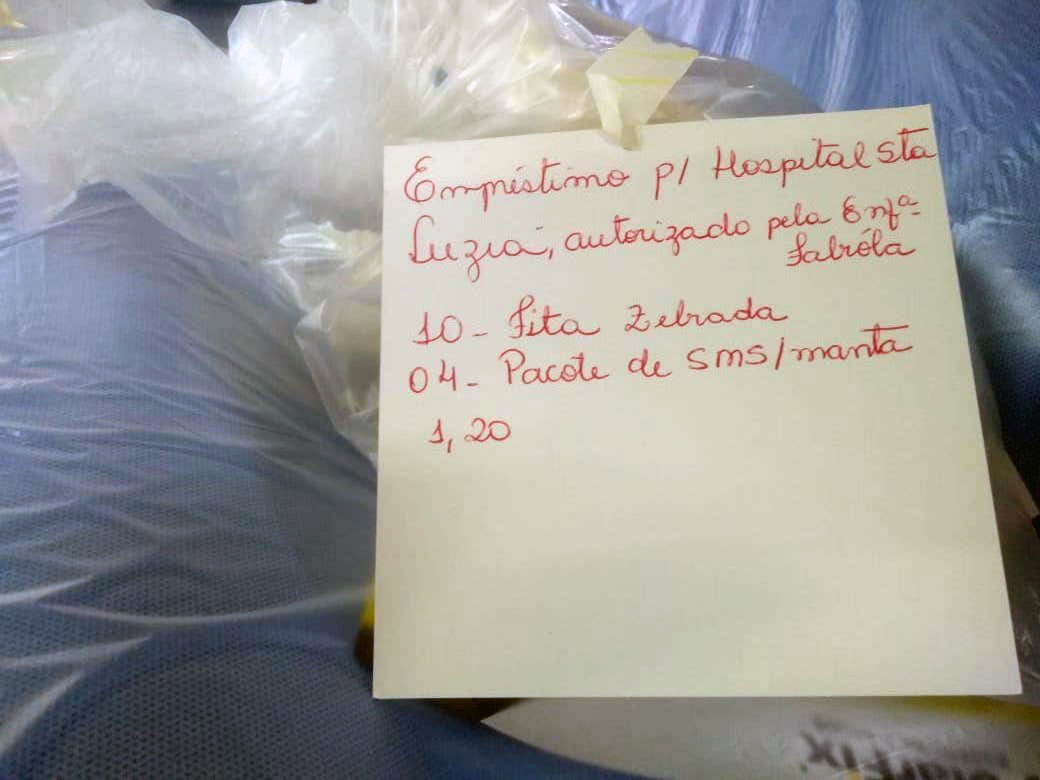 Empréstimo p/ Hospital Sta
Luzia, autorizado pela Enfª
Fabíola
10 - Fita Zebrada
04 - Pacote de SMS/manta
1,20